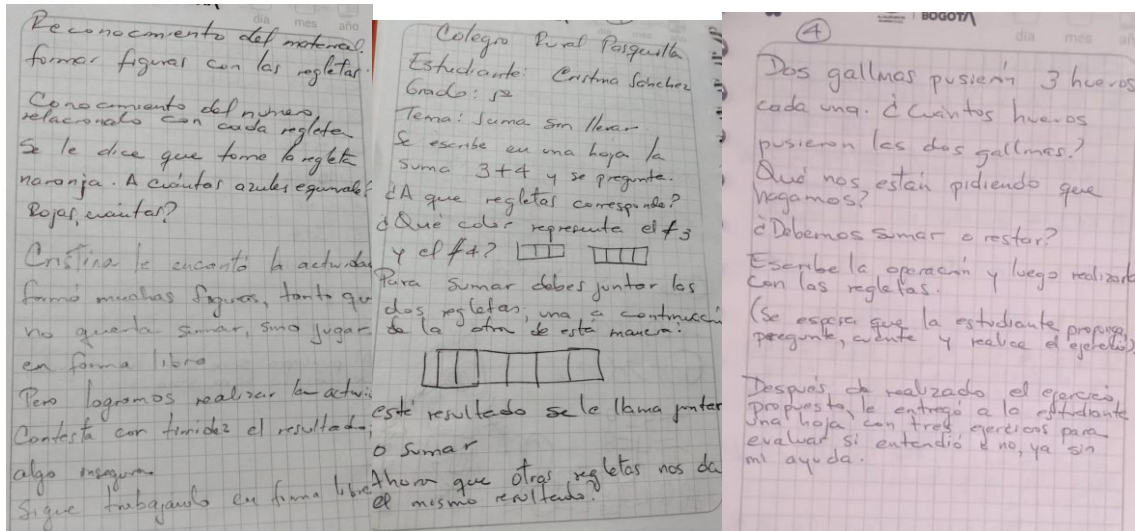 día mes año
Reconocimiento del material.
formar figuras con las regletas.
Conocimiento del numero,
relacionalo con cada regleta
Se le dice que tome la regleta
naranja. A cuántas azules equivale?
Rojas, cuántas?
Cristina le encantó la actividad
formó muchas figuras, tanto que
no quería sumar, sino jugar
en forma libre
Pero logramos realizar la activi
Contesta con timidez el resultado,
algo insegura
Sigue trabajando en forma libre
Colegio Rural Pasquilla
Estudiante: Cristina Sánchez
Grado:
Tema: Suma sin llevar.
Se escribe en una hoja la
suma 3+4 y se pregunta.
¿A que regletas corresponde?
¿Qué color representa el #3
y el #4?
Para sumar debes juntar las
dos regletas, una a continuación
de la otra de esta manera:
este resultado se le llama juntar
o sumar
Ahora que otras regletas nos da
el mismo resultado?
BOGOTÁ
día mes
4
Dos gallinas pusieron 3 huevos
cada una. ¿Cuántos huevos
pusieron las dos gallinas?
Qué nos están pidiendo que
hagamos?
¿Debemos sumar o restar?
Escribe la operación y luego realizarla
con las regletas.
(Se espera que la estudiante proponga,
pregunte, cuente y realice el ejercicio)
Después de realizado el ejercicio
propuesto, le entregó a la estudiante
una hoja con tres ejercicios para
evaluar si entendió o no, ya sin
mi ayuda.